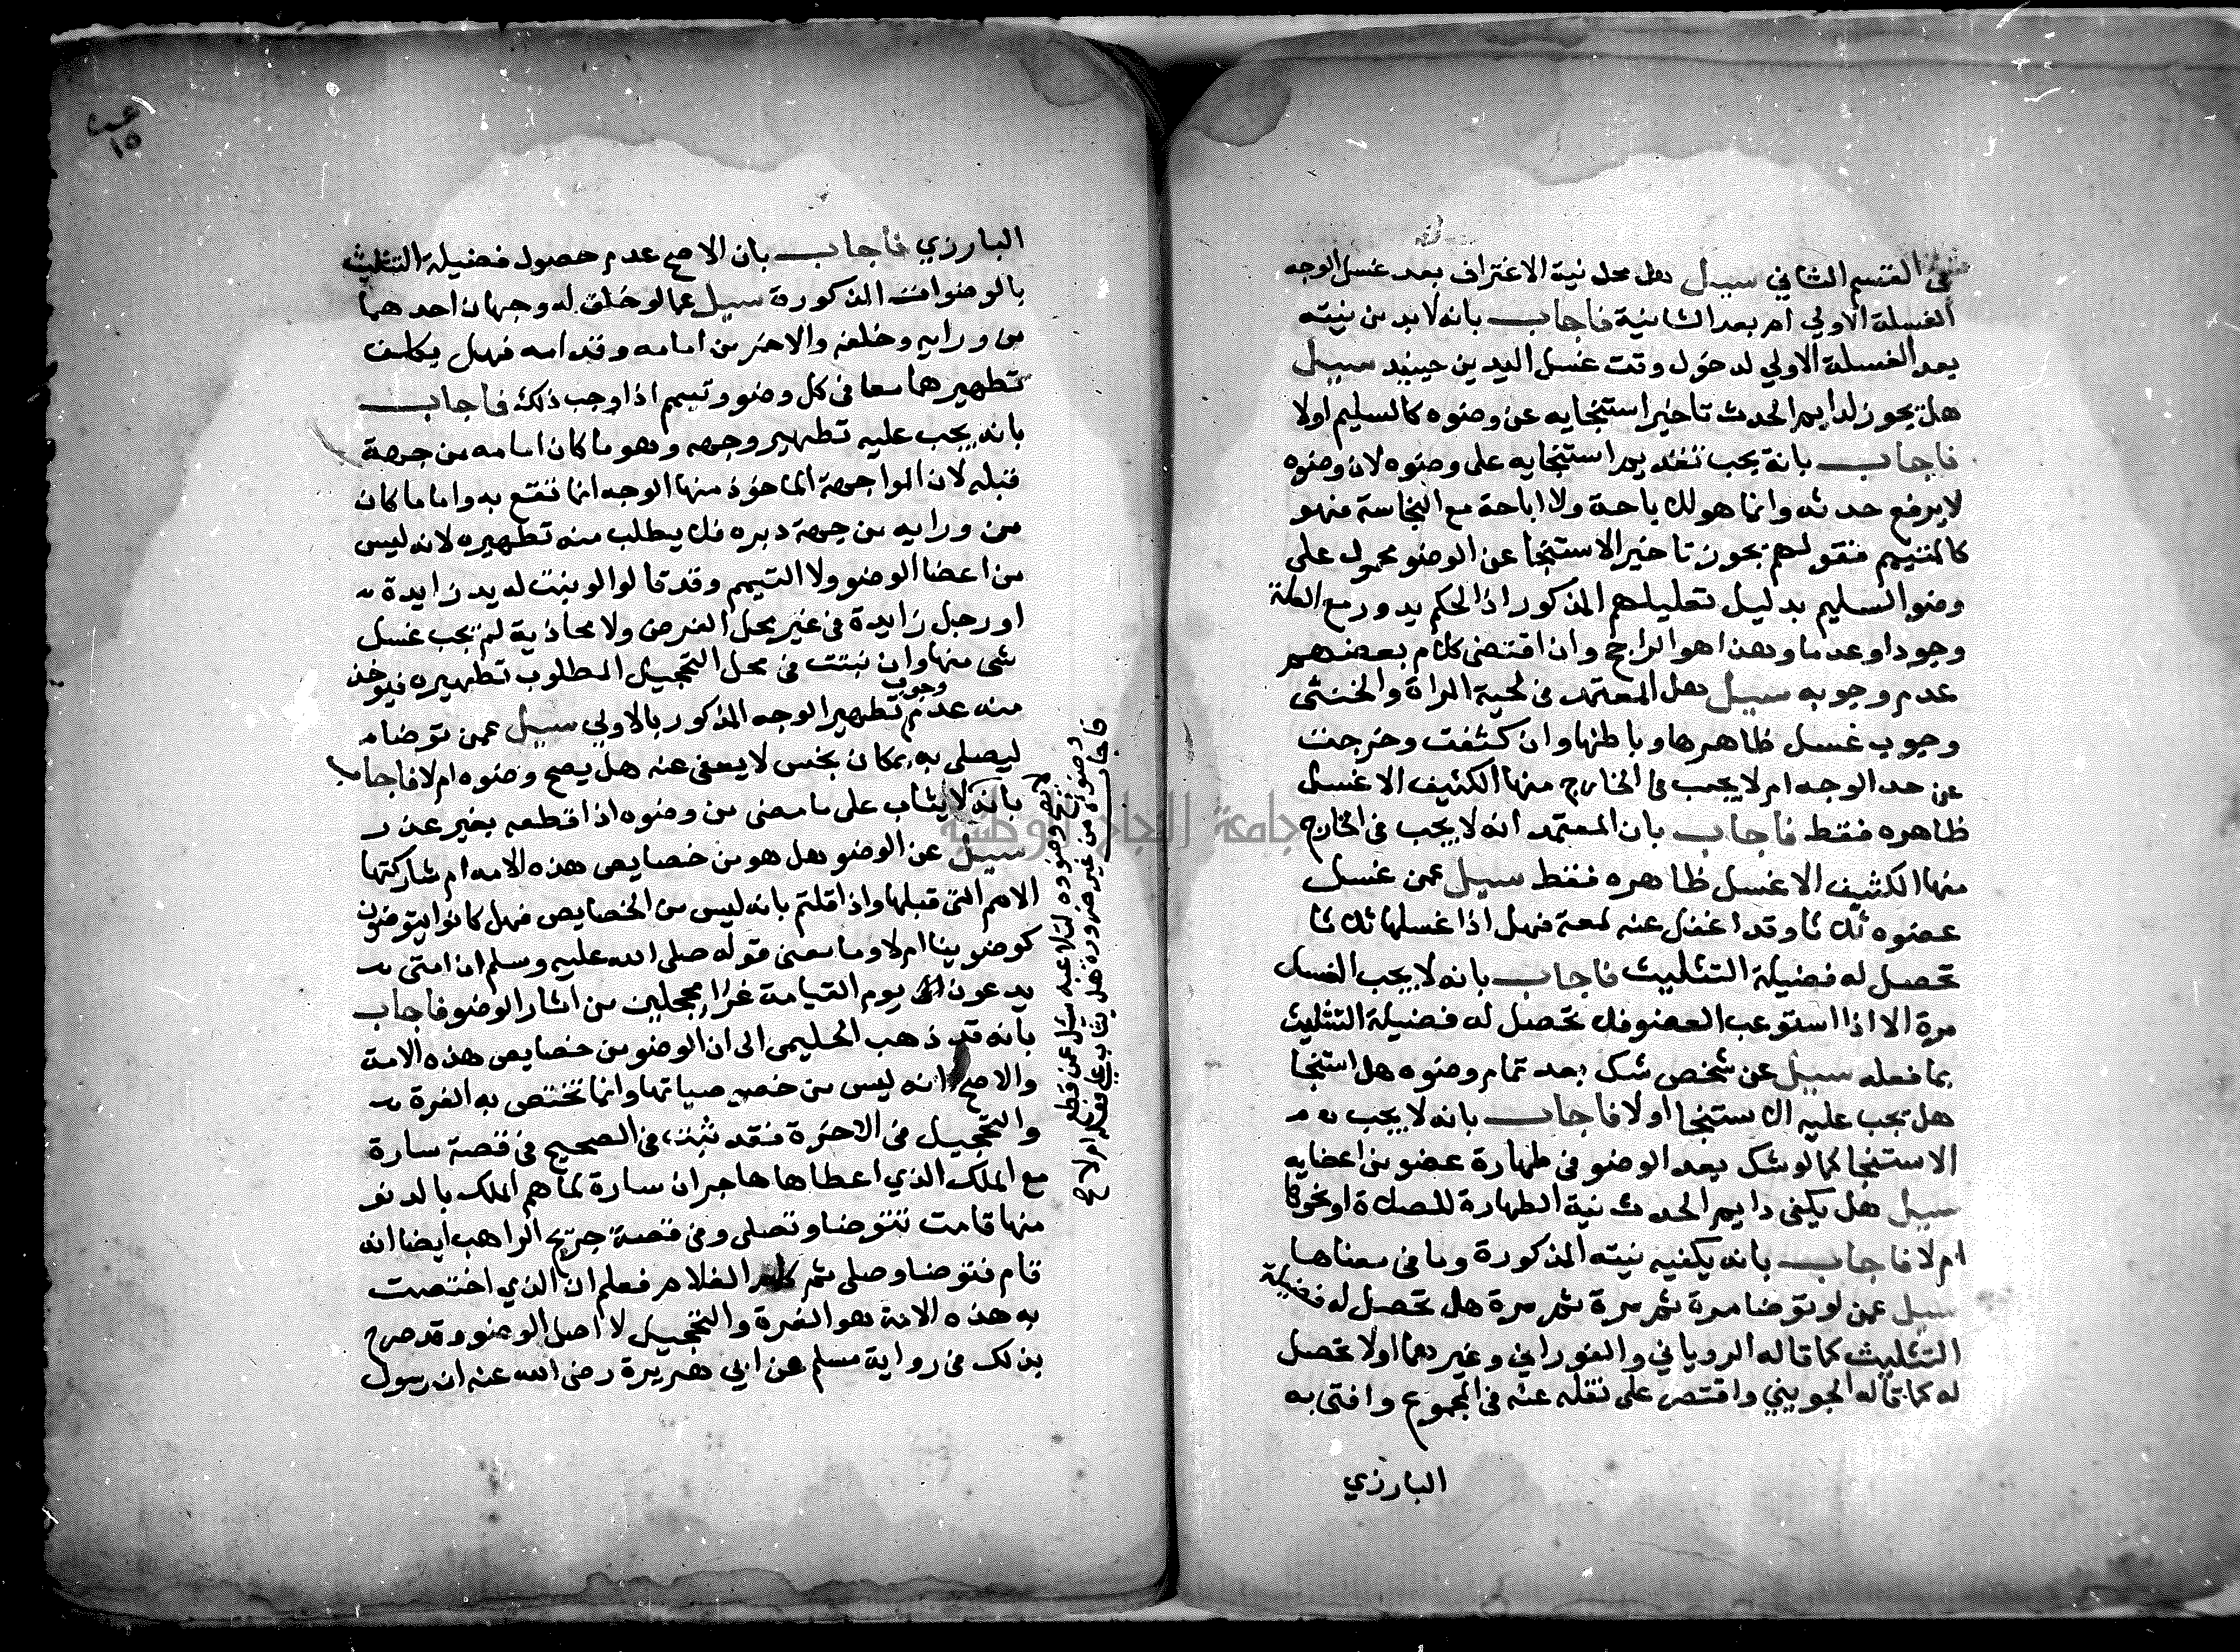 في القسم الثاني سيل هل محل نية الاغتراف بعد غسل الوجه
الغسلة الاولي ام بعد الثانية فاجاب بانه لا بد من نيته
بعد الغسلة الاولي لدخول وقت غسل اليدين حينيد سيل
هل يجوز لدايم الحدث تاخير استنجايه عن وضوه كالسليم اولا
فاجاب بانه يجب تقديم استنجايه على وضوه لان وضوه
لا يرفع حدثه وانما هو للاباحة ولا اباحة مع النجاسة فهو
كالمتيمم فقولهم يجوز تاخير الاستنجا عن الوضو محمول على
وضو السليم بدليل تعليلهم المذكور اذ الحكم يدور مع العلة
وجودا وعدما وهذا هو الراجح وان اقتضى كلام بعضهم
عدم وجوبه سيل هل المعتمد في لحية المراة والخنثى
وجوب غسل ظاهرها وباطنها وان كثفت وخرجت
عن حد الوجه ام لا يجب في الخارج منها الكثيف الا غسل
ظاهره فقط فاجاب بان المعتمد انه لا يجب في الخارج
منها الكثيف الا غسل ظاهره فقط سيل عمن غسل
عضوه ثلاثا وقد اغفل عنه لمعة فهل اذا غسلها ثلاثا
تحصل له فضيلة التثليث فاجاب بانه لا يجب الغسل
مرة الا اذا استوعب العضو فلا تحصل له فضيلة التثليث
بما فعله سيل عن شخص شك بعد تمام وضوه هل استنجا
هل تجب عليه الاستنجا اولا فاجاب بانه لا يجب
الاستنجا كما لو شك بعد الوضو في طهارة عضو من اعضايه
سيل هل يكفى دايم الحدث نية الطهارة للصلاة او نحوها
ام لا فاجاب بانه يكفيه نيته المذكورة وما في معناها
سيل عمن لو توضا مرة ثم مرة ثم مرة هل تحصل له فضيلة
التثليث كما قاله الروياني والفوراني وغيرهما اولا تحصل
له كما قاله الجويني واقتصر على نقله عنه في المجموع وافتى به
البارزي
البارزي فاجاب بان الاصح عدم حصول فضيلة التثليث
بالوضوات المذكورة سيل عما لو خلق له وجهان احدهما
من ورايه وخلفه والاخر من امامه وقدامه فهل يكلف
تطهيرهما معا في كل وضو وتيمم اذا وجب ذلك فاجاب
بانه يجب عليه تطهير وجهه وهو ما كان امامه من جهة
قبله لان المواجهة الماخوذ منها الوجه انما تقع به واما ما كان
من ورايه من جهة دبره فلا يطلب منه تطهيره لانه ليس
من اعضا الوضو ولا التيمم وقد قالوا لو نبت له يد زايدة
او رجل زايدة في غير محل الفرض ولا محاذية لم يجب غسل
شى منها وان نبتت في محل التحجيل المطلوب تطهيره فيوخذ
منه عدم وجوب تطهير الوجه المذكور بالاولي سيل عمن توضا
ليصلى به بمكان نجس لا يعفى عنه هل يصح وضوه ام لا فاجاب
بانه لا يثاب على ما مضى من وضوه اذا قطعه بغير عذر
سيل عن الوضو هل هو من خصايص هذه الامه ام شاركتها
الامم التى قبلها واذا قلتم بانه ليس من الخصايص فهل كانوا يتوضون
كوضوينا ام لا وما معنى قوله صلى الله عليه وسلم ان امتى
يدعون يوم القيامة غرا محجلين من اثار الوضو فاجاب
بانه قد ذهب الحليمى الى ان الوضو من خصايص هذه الامة
والاصح انه ليس من خصوصياتها وانما تختص به الغرة
والتحجيل في الاخرة فقد ثبت في الصحيح في قصة سارة
مع الملك الذي اعطاها هاجر ان سارة لما هم الملك بالدنو
منها قامت تتوضا وتصلى وفي قصة جريج الراهب ايضا انه
قام فتوضا وصلى ثم كلم الغلام فعلم ان الذي اختصت
به هذه الامة هو الغرة والتحجيل لا اصل الوضو وقد صرح
بذلك في رواية مسلم عن ابي هريرة رضى الله عنه ان رسول
يصح وضووه سئل عمن قطع
وضوه من غير ضرورة هل يثاب على فعله ام لا صح
فاجاب
جامعة النجاح الوطنية
١٥